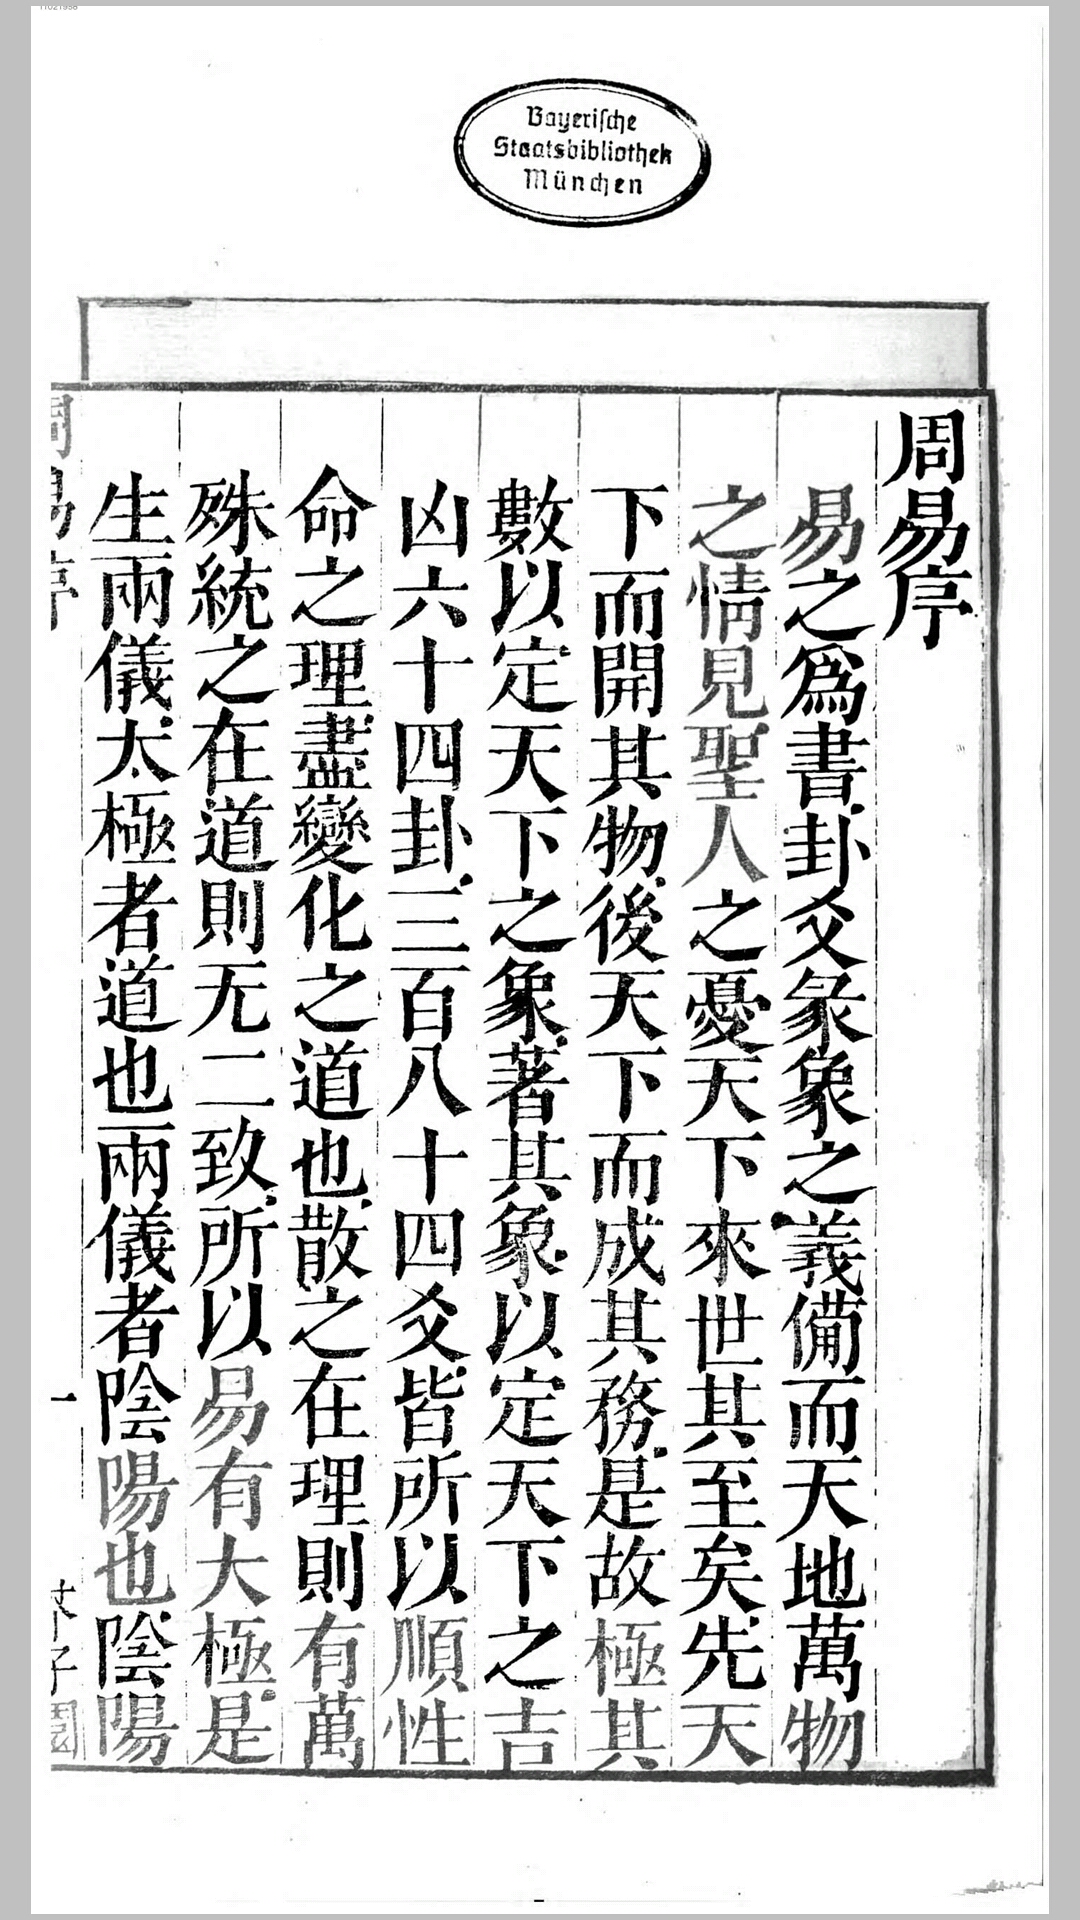 11021998
Bayerische
Staatsbibliothek
München
周易序
易之爲書卦爻彖象之義備而天地萬物
之情見聖人之憂天下來世其至矣先天
下而開其物後天下而成其務是故極其
數以定天下之象著其象以定天下之吉
凶六十四卦三百八十四爻皆所以順性
命之理盡變化之道也散之在理則有萬
殊統之在道則无二致所以易有大極是
生兩儀太極者道也兩儀者陰陽也陰陽
周易序
一
芥子園